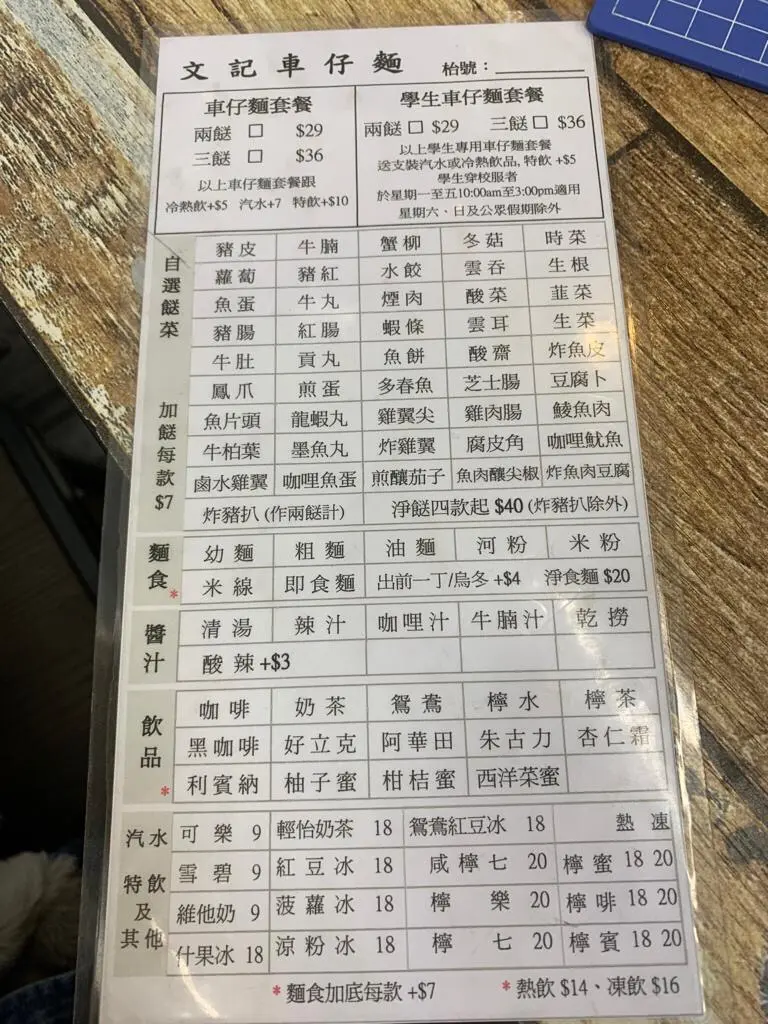 文記車仔麵 枱號：
車仔麵套餐
兩餸 □ $29
三餸 □ $36
以上車仔麵套餐跟
冷熱飲+$5 汽水+7 特飲+$10
學生車仔麵套餐
兩餸 □ $29 三餸 □ $36
以上學生專用車仔麵套餐
送支裝汽水或冷熱飲品, 特飲 +$5
學生穿校服者
於星期一至五10:00am至3:00pm適用
星期六、日及公眾假期除外
自選餸菜
加餸每款$7
豬皮 牛腩 蟹柳 冬菇 時菜
蘿蔔 豬紅 水餃 雲吞 生根
魚蛋 牛丸 煙肉 酸菜 韮菜
豬腸 紅腸 蝦條 雲耳 生菜
牛肚 貢丸 魚餅 酸齋 炸魚皮
鳳爪 煎蛋 多春魚 芝士腸 豆腐卜
魚片頭 龍蝦丸 雞翼尖 雞肉腸 鯪魚肉
牛柏葉 墨魚丸 炸雞翼 腐皮角 咖哩魷魚
鹵水雞翼 咖哩魚蛋 煎釀茄子 魚肉釀尖椒 炸魚肉豆腐
炸豬扒 (作兩餸計) 淨餸四款起 $40 (炸豬扒除外)
麵食*
幼麵 粗麵 油麵 河粉 米粉
米線 即食麵 出前一丁/烏冬 +$4 淨食麵 $20
醬汁
清湯 辣汁 咖哩汁 牛腩汁 乾撈
酸辣 +$3
飲品*
咖啡 奶茶 鴛鴦 檸水 檸茶
黑咖啡 好立克 阿華田 朱古力 杏仁霜
利賓納 柚子蜜 柑桔蜜 西洋菜蜜
汽水
特飲及其他
可樂 9 輕怡奶茶 18 鴛鴦紅豆冰 18 熱 凍
雪碧 9 紅豆冰 18 咸檸七 20 檸蜜 18 20
維他奶 9 菠蘿冰 18 檸樂 20 檸啡 18 20
什果冰 18 涼粉冰 18 檸七 20 檸賓 18 20
* 麵食加底每款 +$7 * 熱飲 $14、凍飲 $16